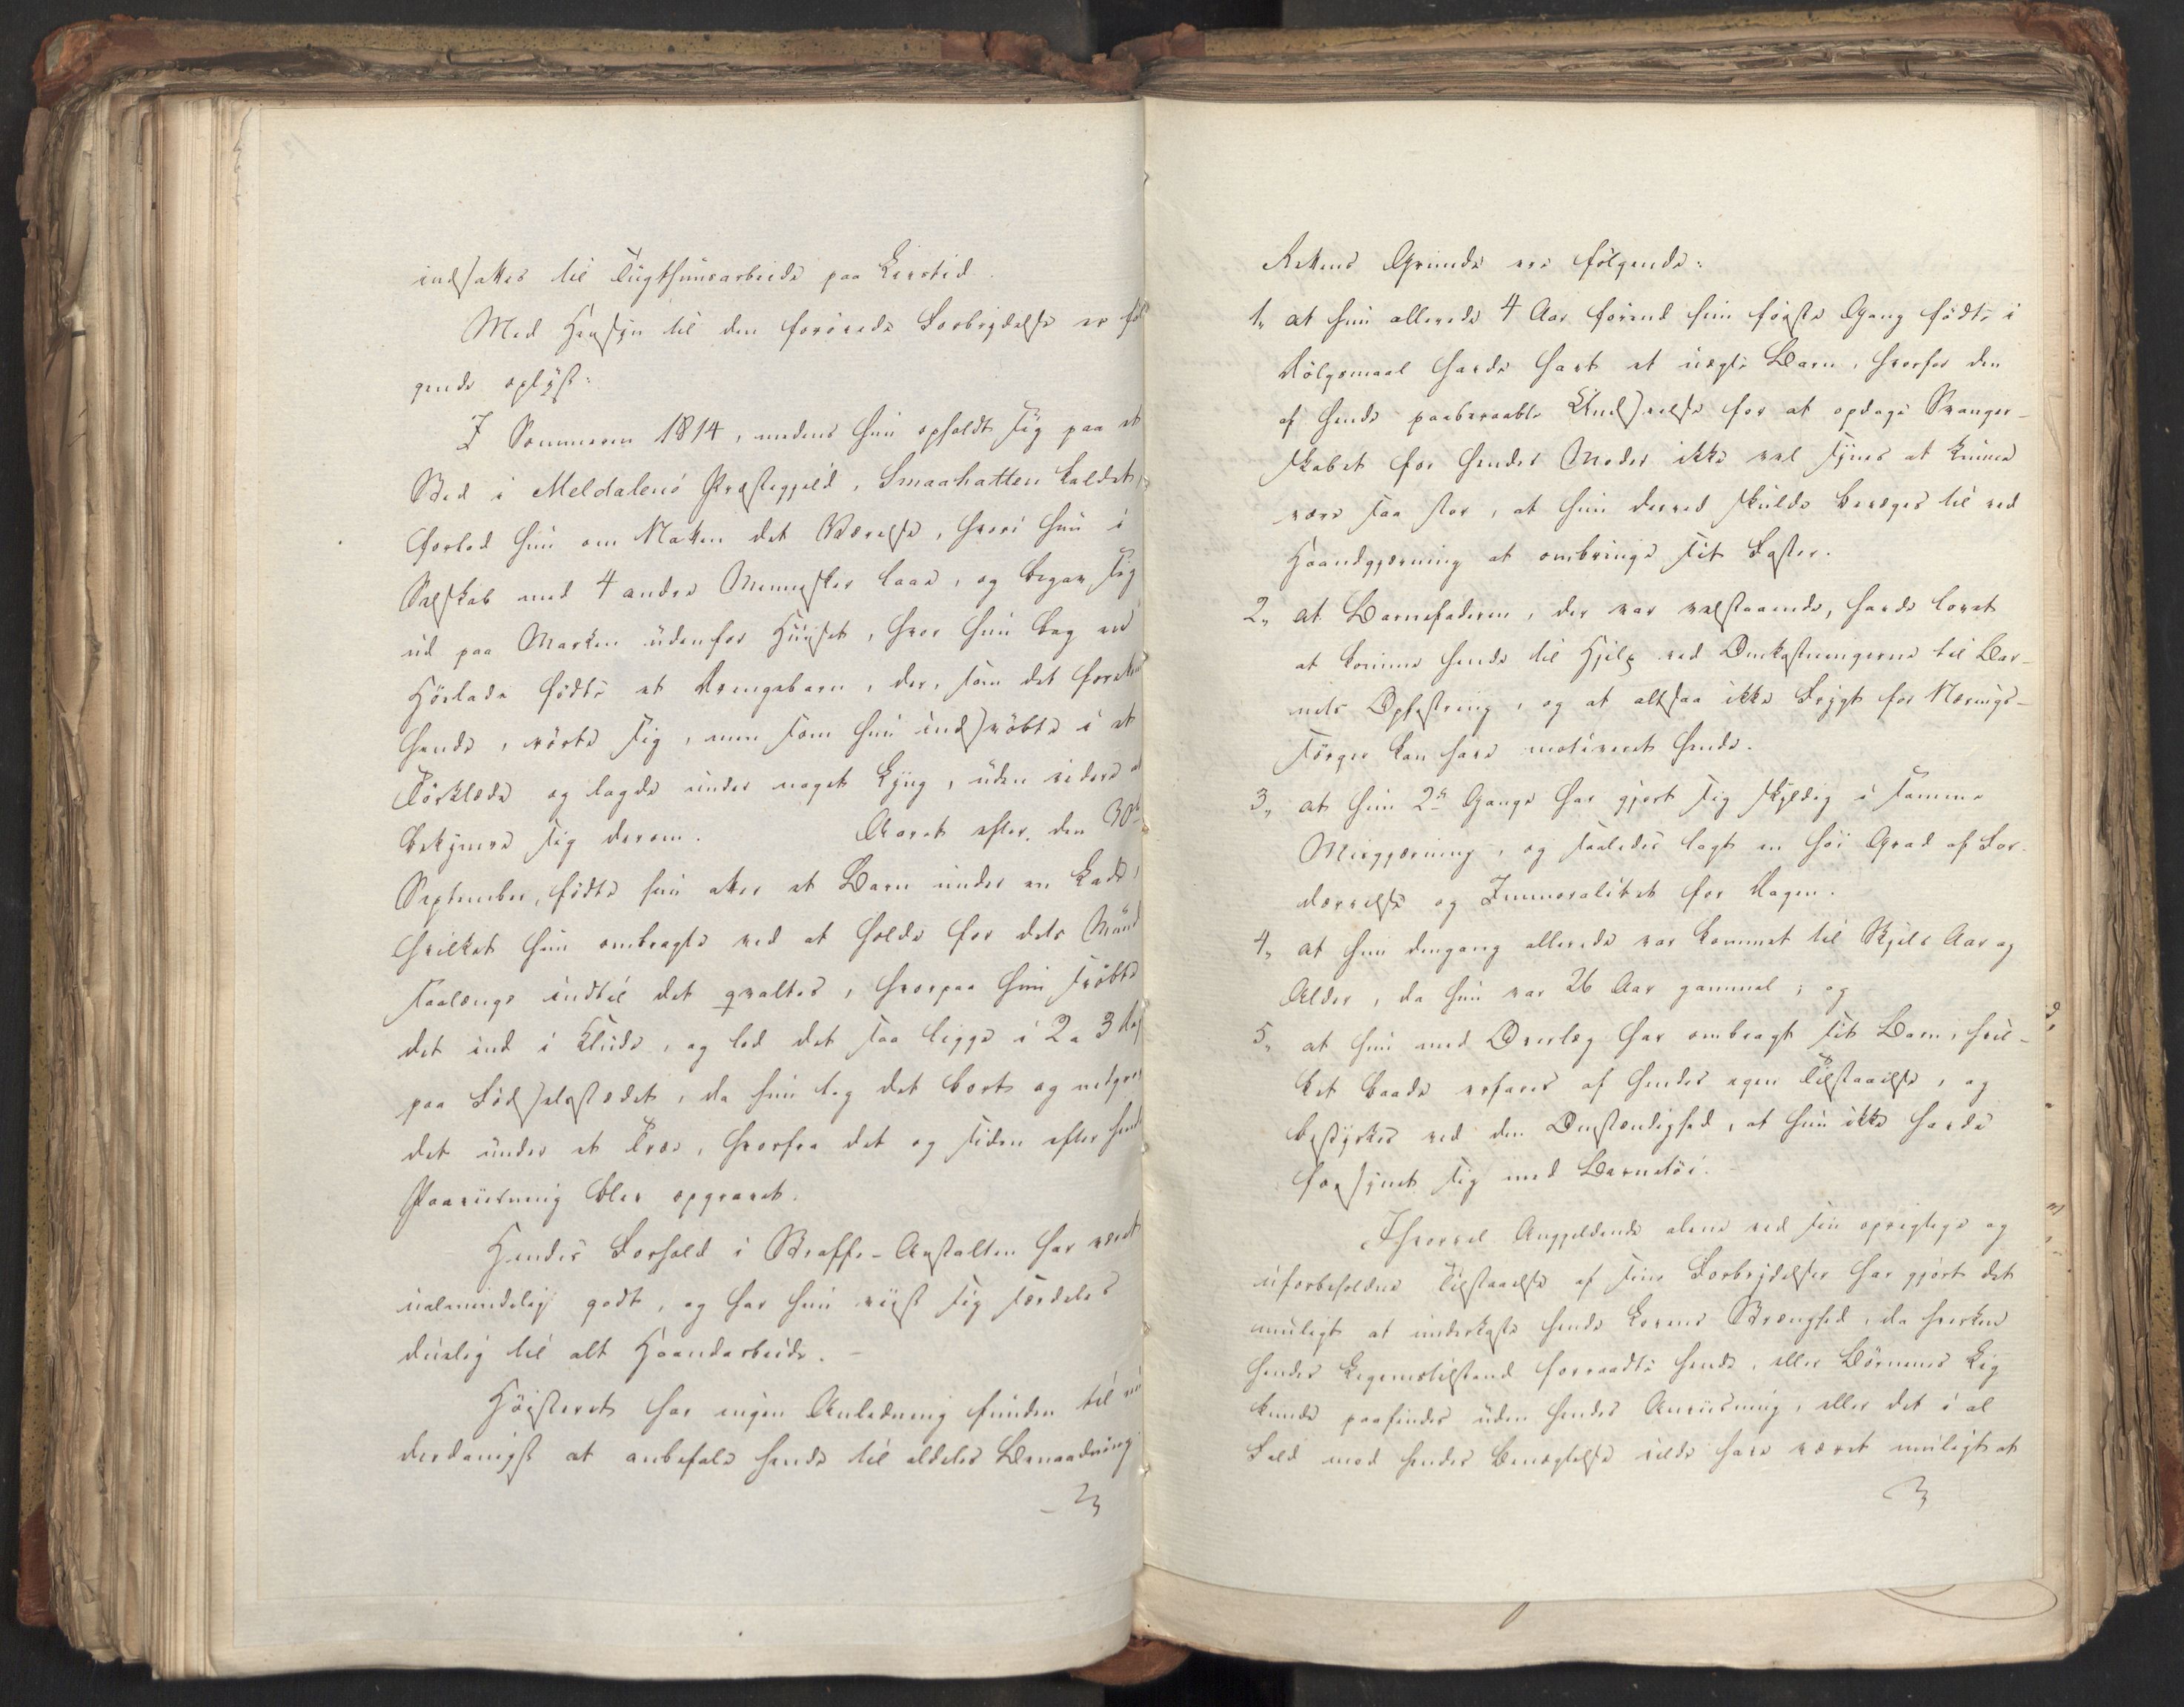 indsættes til Tugthuusarbeide paa Livstid.
Med Hensyn til den forövede Forbrydelse er föl
gende oplyst:
I Sommeren 1814, medens hun opholdt sig paa et
Sted i Meldalens Præstegjeld, Smaahatten kaldet,
forlod hun om Natten det Værelse, hvori hun i
Selskab med 4 andre Mennesker laae, og begav sig
ud paa Marken udenfor Huuset, hvor hun bag en
Höelade födte et Drengebarn, der, som det forekom
hende, rörte sig, men som hun indsvöbte i et
Törklæde og lagde under noget Lyng, uden videre at
bekymre sig derom. Aaret efter, den 30te
September, födte hun atter et Barn under en Lade,
hvilket hun ombragte ved at holde for dets Mund
saalænge indtil det qvaltes, hvorpaa hun svöbte
det ind i Klude, og lod det saa ligge i 2 a 3 Dage
paa Födselsstedet, da hun tog det bort og nedgrov
det under et Træe, hvorfra det og siden efter hendes
Paaviisning blev opgravet.
Hendes Forhold i Straffe-Anstalten har været
ualmindelig godt, og har hun viist sig særdeles
duelig til alt Haandarbeide. –
Höiesteret har ingen Anledning funden til un
derdanigst at anbefale hende til aldeles Benaadning
Rettens Grunde ere fölgende:
1, at hun allerede 4 Aar förend hun förste Gang födte i
Dölgsmaal havde havt et uægte Barn, hvorfor den
af hende paaberaabte Undseelse for at opdage Svanger-
skabet for hendes Moder ikke vel synes at kunne
være saa stor, at hun derved skulde bevæges til ved
Haandgjerning at ombringe sit Foster.
2, at Barnefaderen, der var velstaaende, havde lovet
at komme hende til Hjelp ved Omkostningerne til Bar-
nets Opfostring, og at altsaa ikke Frygt for Nærings-
sorger kan have motiveret hende.
3, at hun 2de Gange har gjort sig skyldig i samme
Misgjerning, og saaledes lagt en höi Grad af For-
dærvelse og Immoralitet for Dagen.
4, at hun dengang allerede var kommet til Skjels Aar og
Alder, da hun var 26 Aar gammel; og
5, at hun med Overlæg har ombragt sit Barn, hvil-
ket baade erfares af hendes egen Tilstaaelse, og
bestyrkes ved den Omstændighed, at hun ikke havde
forsynet sig med Barnetöi. –
Ihvorvel Angjeldende alene ved sin oprigtige og
uforbeholdne Tilstaaelse af sine Forbrydelser har gjort det
muligt at underkaste hende Lovens Strænghed, da hverken
hendes Legemstilstand forraadte hende, eller Börnenes Liig
kunde paafindes uden hendes Anviisning, eller det i al
Fald mod hendes Benægtelse vilde have været muligt at